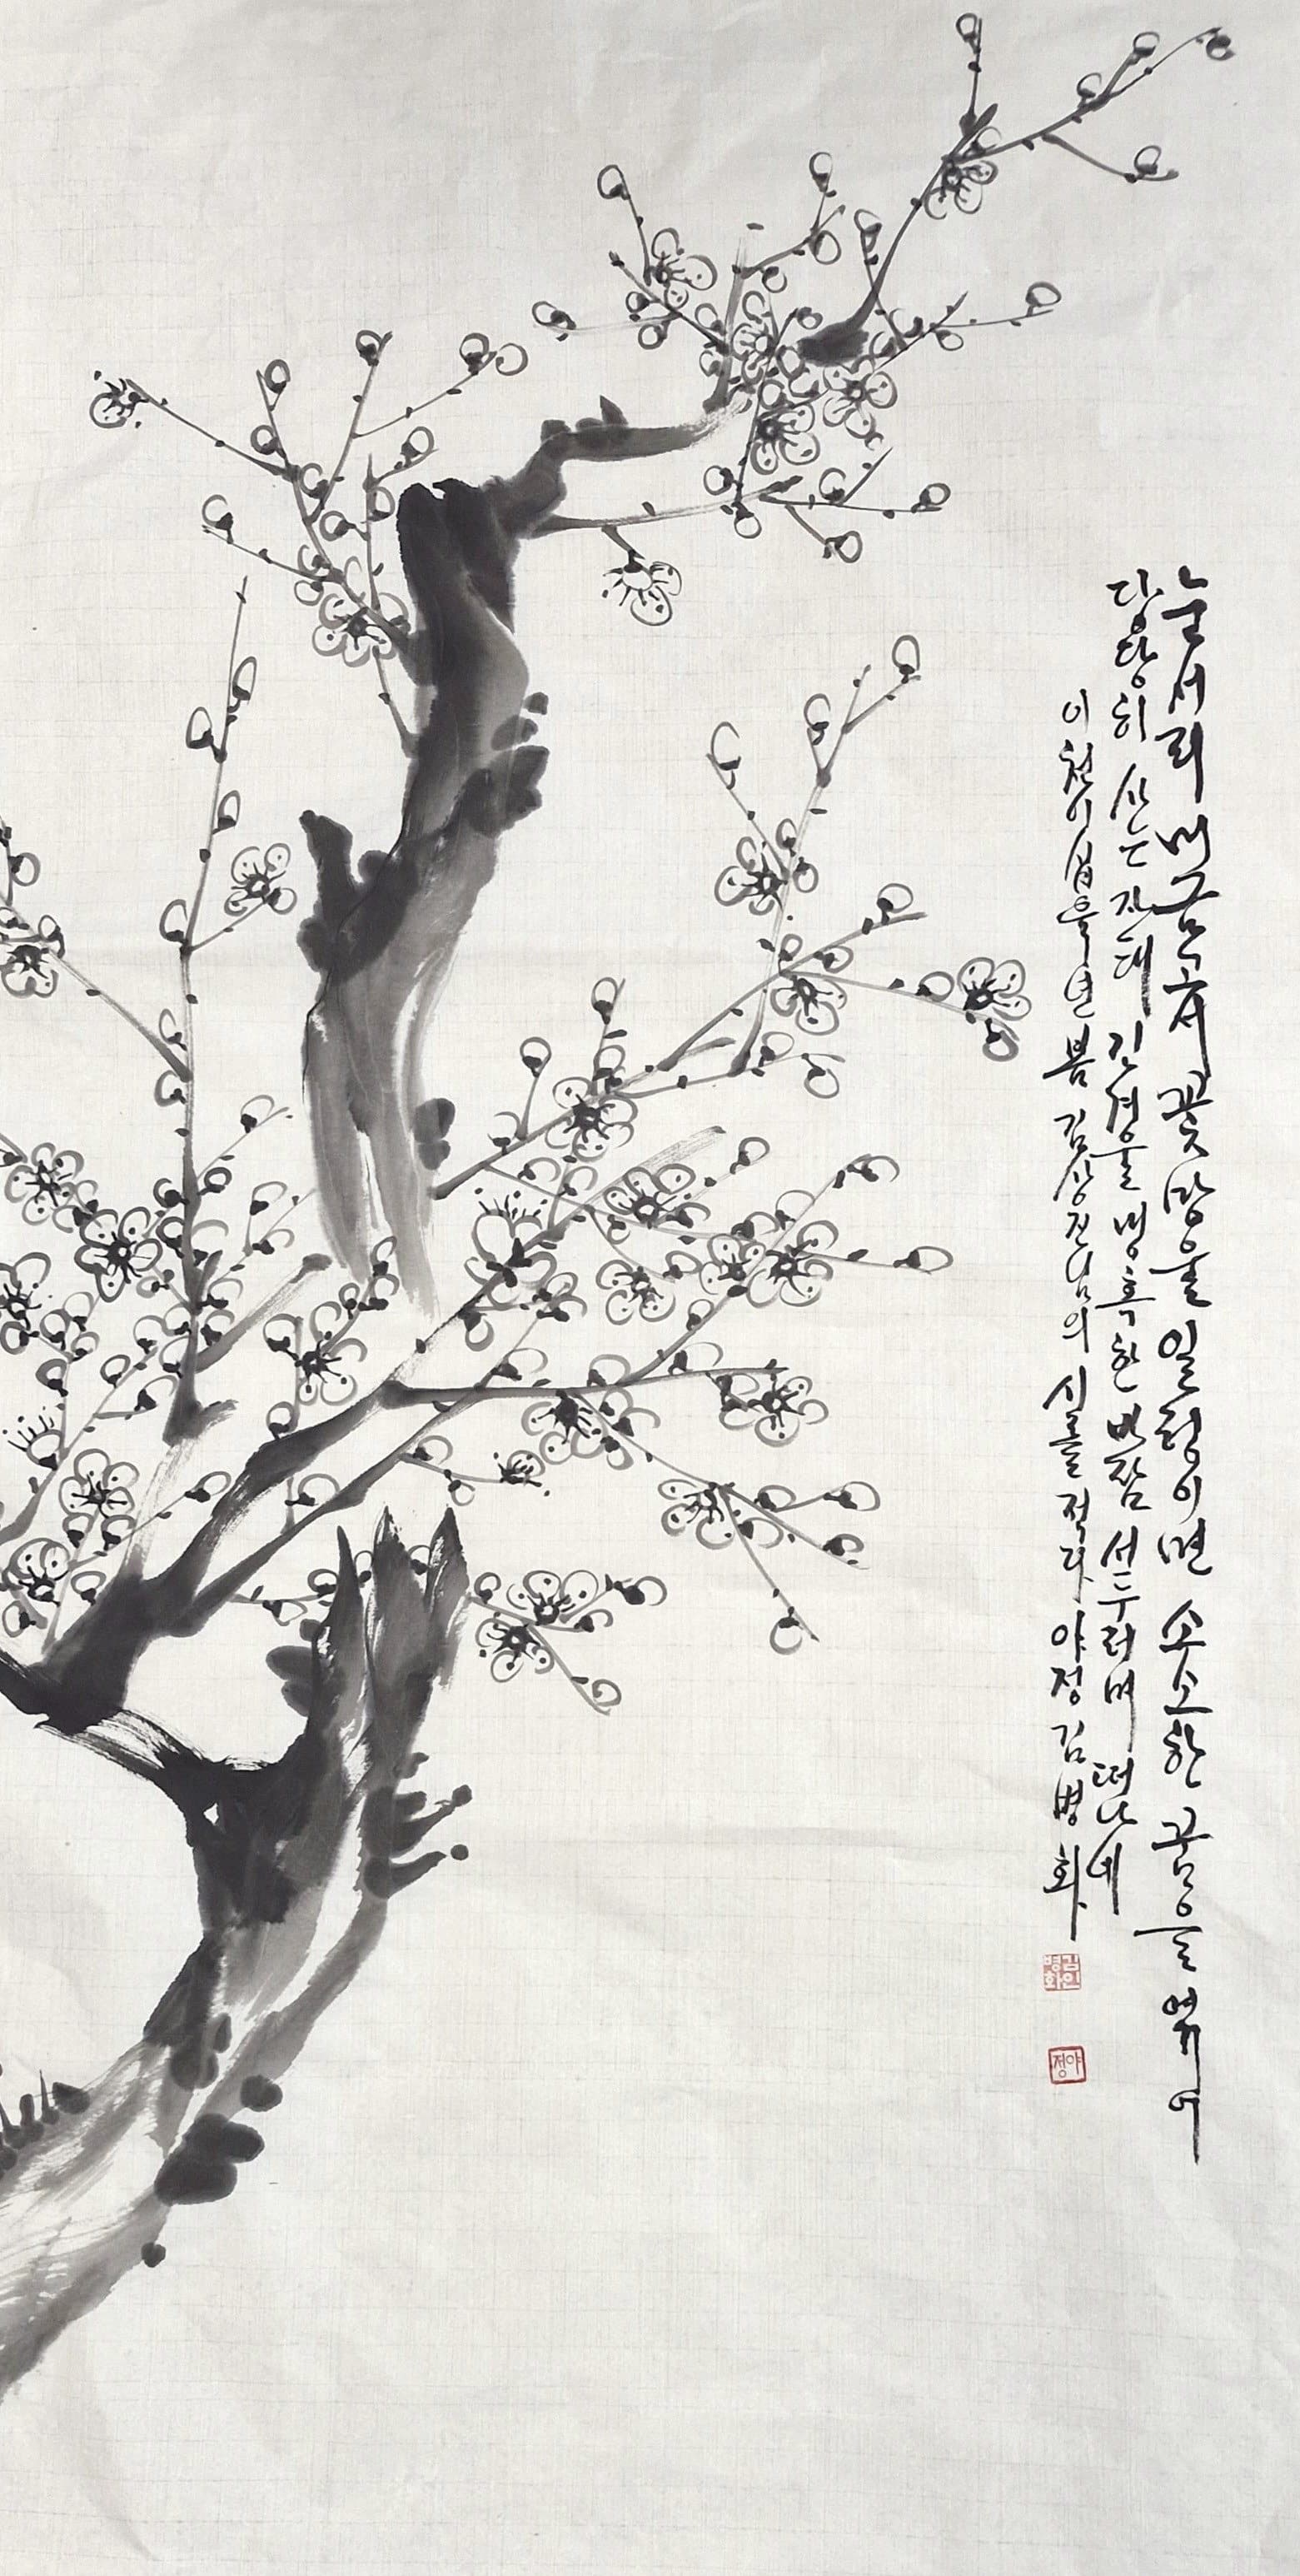 눈서리 머금은채 꽃망울 일렁이면 소소한 꿈을 엮어
당당히 자태 긴겨울 맹혹한 바람 서두러며 떠나네
이천이십육년 봄 김상진님의 시를 적다 야정 김병화
김인병화
야정